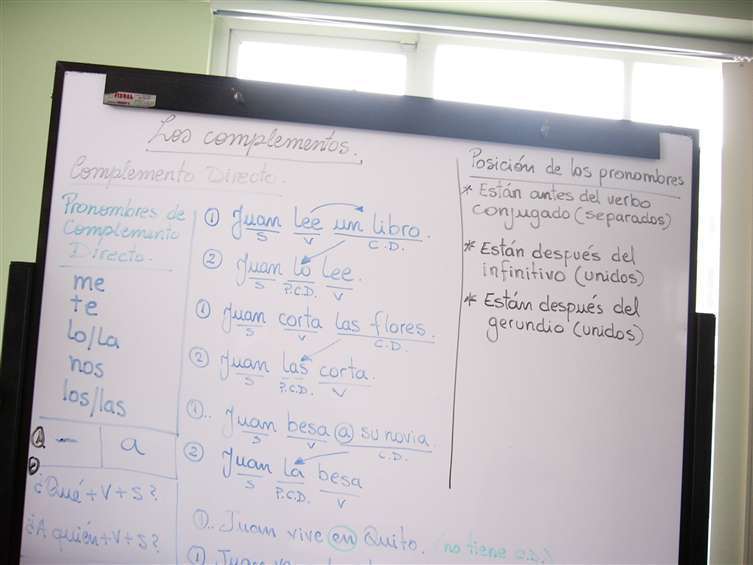 Los complementos.
Complemento Directo.
Pronombres de
Complemento
Directo.
me
te
lo/la
nos
los/las
- a
¿Qué + V + S?
¿A quién + V + S?
① Juan lee un libro.
S V C.D.
② Juan lo lee.
S P.C.D. V
① Juan corta las flores.
S V C.D.
② Juan las corta.
S P.C.D. V
①.. Juan besa a su novia.
S V C.D.
② Juan la besa
S P.C.D. V
①.. Juan vive en Quito. (no tiene C.D.)
① Juan
Posición de los pronombres
* Están antes del verbo
conjugado (separados)
* Están después del
infinitivo (unidos)
* Están después del
gerundio (unidos)